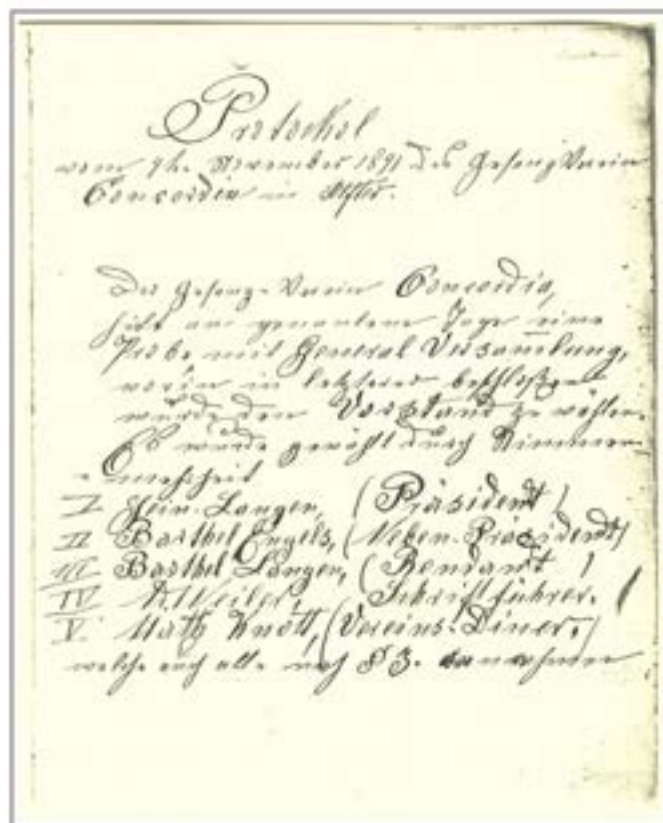 Protokol
vom 9te. November 1891 des Gesang Verein
Concordia in Alfter.
Der Gesang-Verein Concordia,
hilt am genanten Tage eine
Probe mit General Versamlung,
worin in letzterer beschloßen
wurde den Vorstand zu wählen.
Es wurde gewählt durch Stimmen-
-mehrheit
I Hein. Langen, (Präsident)
II Barthel Engels, (Neben-Präsident)
III Barthel Langen, (Rendant)
IV Weiler, Schriftführer.
V. Math Knott, (Vereins-Diner.)
welche auch alle nach § 3. annahmen